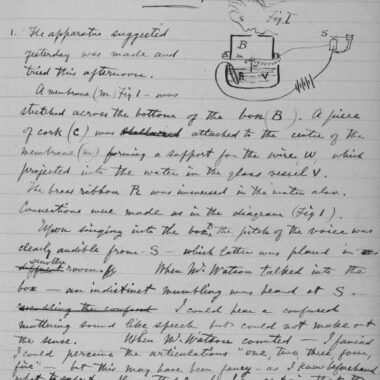 Fig 1
S
B
S
R
V
1. The apparatus suggested
yesterday was made and
tried this afternoon.
A membrane (m) Fig 1 - was
stretched across the bottom of the box (B). A piece
of cork (C) was attached to the centre of the
membrane (m) forming a support for the wire W, which
projected into the water in the glass vessel V.
The brass ribbon R was immersed in the water also.
Connections were made as in the diagram (Fig 1).
Upon singing into the box, the pitch of the voice was
clearly audible from S - which latter was placed in
another
different room.
When Mr Watson talked into the
box - an indistinct mumbling was heard at S.
I could hear a confused
muttering sound like speech but could not make out
the sense. When Mr Watson counted - I fancied
I could perceive the articulations "one, two, three, four,
five" - but this may have been fancy - as I knew beforehand
what to expect.